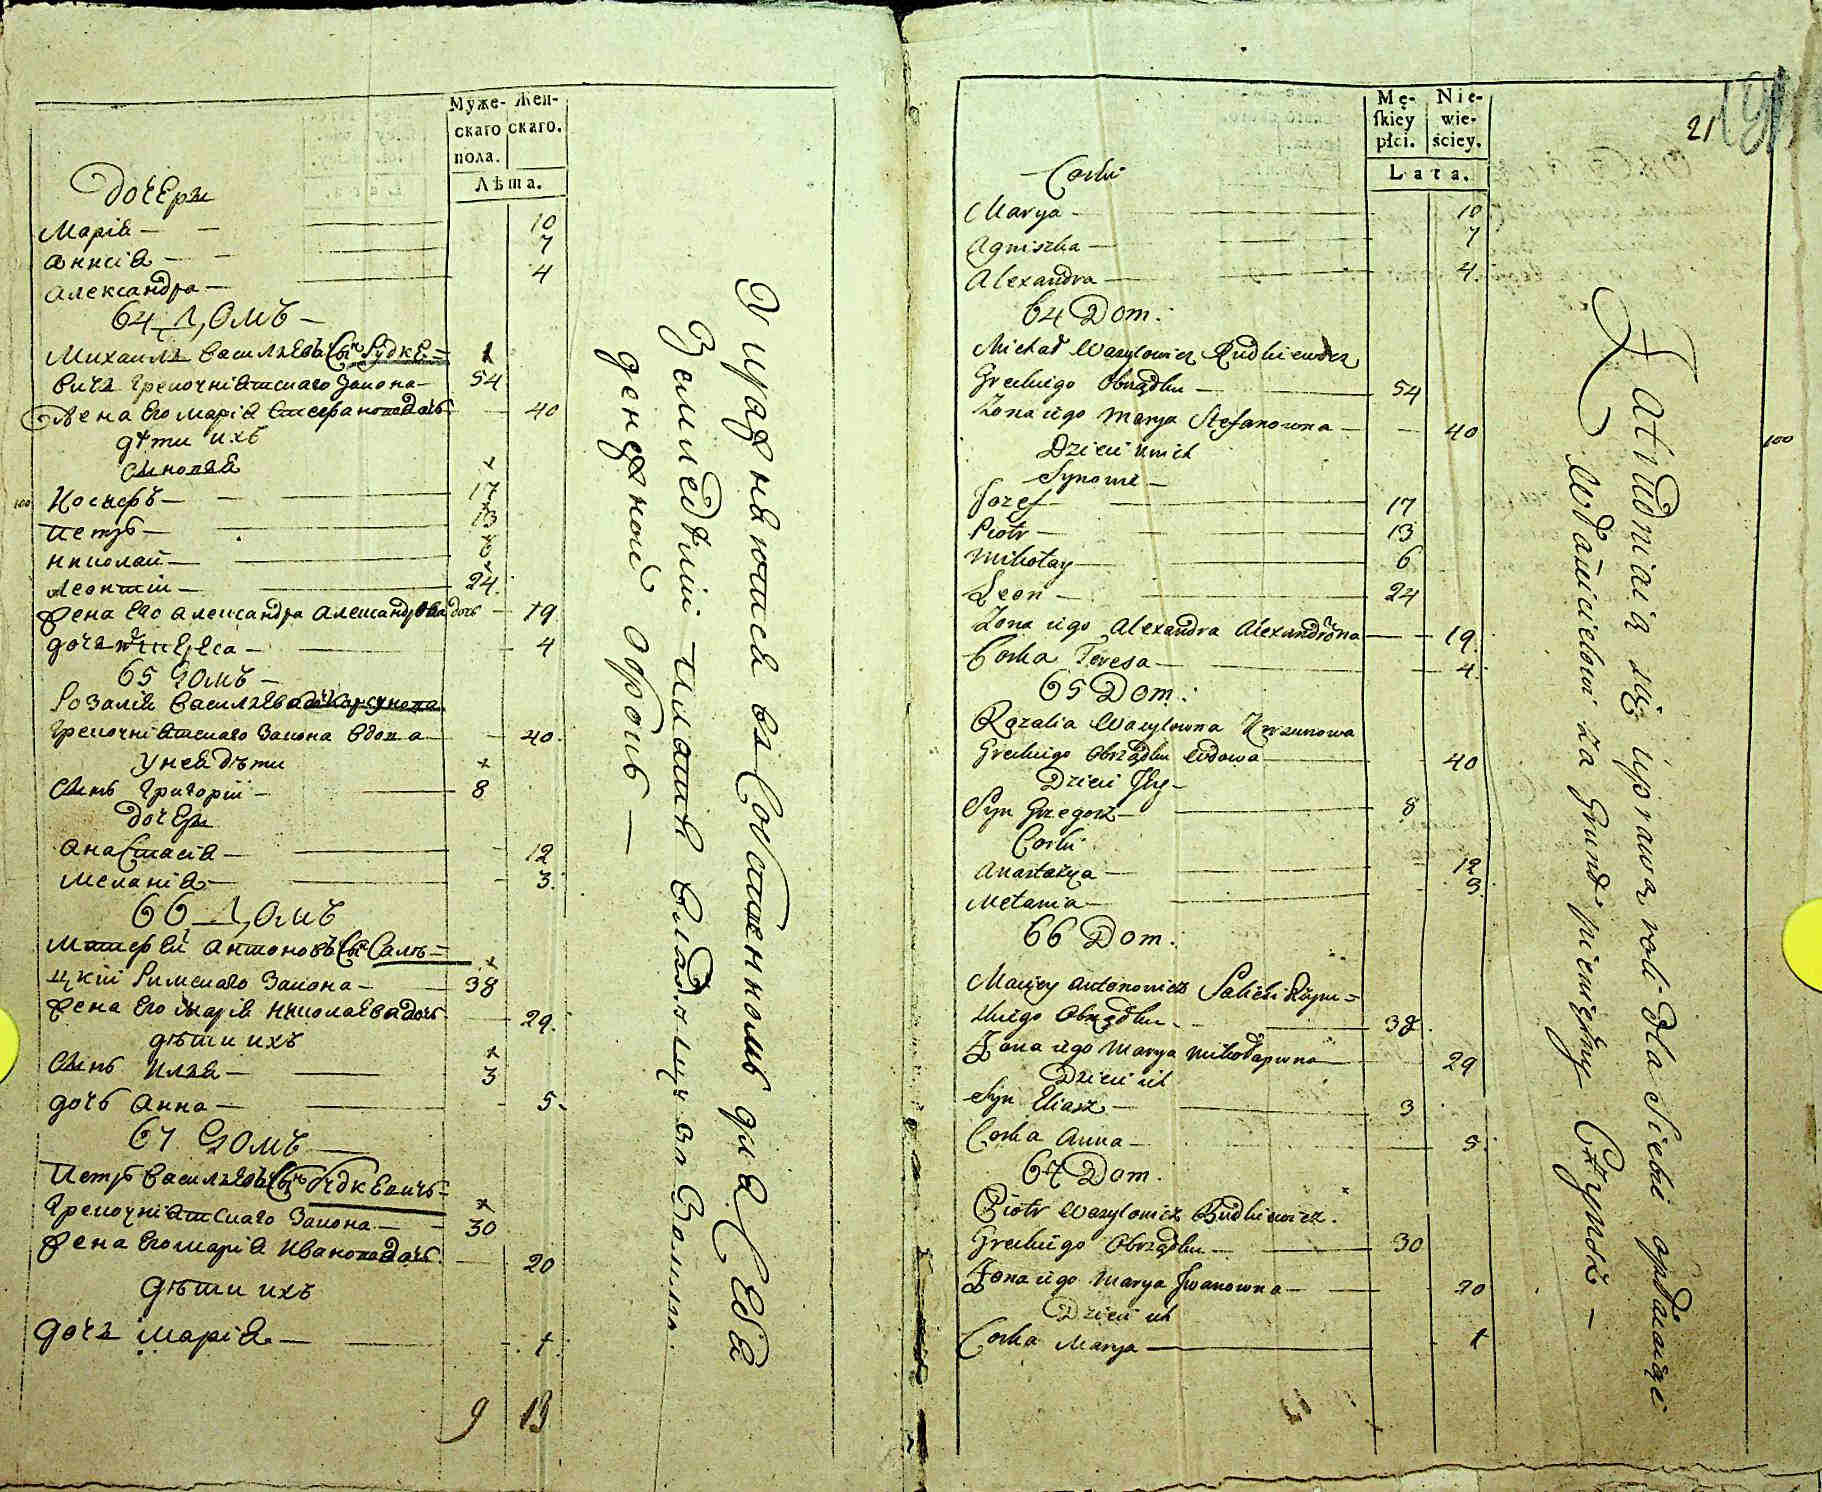 Муже- Жен-
скаго скаго.
пола.
Лѣта.
дочери
Марія — — 10
Аннсія — — 7
Александра — 4
64 Домъ —
Михаилъ Васильевъ Сынъ Рудке=
вичъ Гречоунiатскаго Закона — 54
Жена Его Марія Степанова дочь 40
дѣти ихъ
Сыновья
Иосифъ — 17
Петръ — 13
Николай — 6
Леонтій — 24
Жена Его Александра Александрова дочь — 19
дочь Тереса — 4
65 Домъ —
Розалія Васильева дочь
Закона Вдова — 40
У неей дѣти
Сынъ Григорій — 8
дочери
Анастасія — 12
Меланія — 3
66 Домъ
Матфей Антоновъ Сынъ Салѣ=
цкій Римскаго Закона — 38
Жена Его Марія Николаева дочь 29
дѣти ихъ
Сынъ Илья — 3
дочь Анна — 5
67 Домъ
Петръ Васильевъ Сынъ Рудкевичъ
Закона — 30
Жена Его Марія Иванова дочь 20
дѣти ихъ
дочь Марія — 1
9 13
Упражняются въ Собственномъ для Себя
Земледѣліи — Платятъ Владѣльцу за Землю
денежной оброкъ —
100
Mę- Nie-
ſkiey wie-
płci. ściey.
Lata.
21
Corki
Marya — 10
Agniszka — 7
Alexandra — 4
64 Dom.
Michał Wasylowicz Rudkiewicz
Greckiego Obrządku — 54
Zona iego Marya Stefanowna — 40
Dzieci unich
Synowie —
Jozef — 17
Piotr — 13
Mikołay — 6
Leon — 24
Zona iego Alexandra Alexandrowna — 19
Corka Teresa — 4
65 Dom.
Rozalia Wasylowna Korsunowa
Greckiego Obrządku Wdowa — 40
Dzieci Jey —
Syn Grzegorz — 8
Corki
Anastazya — 12
Melania — 3
66 Dom.
Maciey Antonowicz Salicki Rzym=
skiego Obrządku — 38
Zona iego Marya Mikołaiowna 29
Dzieci ich
Syn Eliasz — 3
Corka Anna — 5
67 Dom.
Piotr Wasylowicz Rudkiewicz.
Greckiego Obrządku — 30
Zona iego Marya Iwanowna — 20
Dzieci ich
Corka Marya — 1
Zatrudniaią się uprawą roli dla Siebie opłacaiąc
Właścicielowi za Grunt pieniężny Czynsz —
100